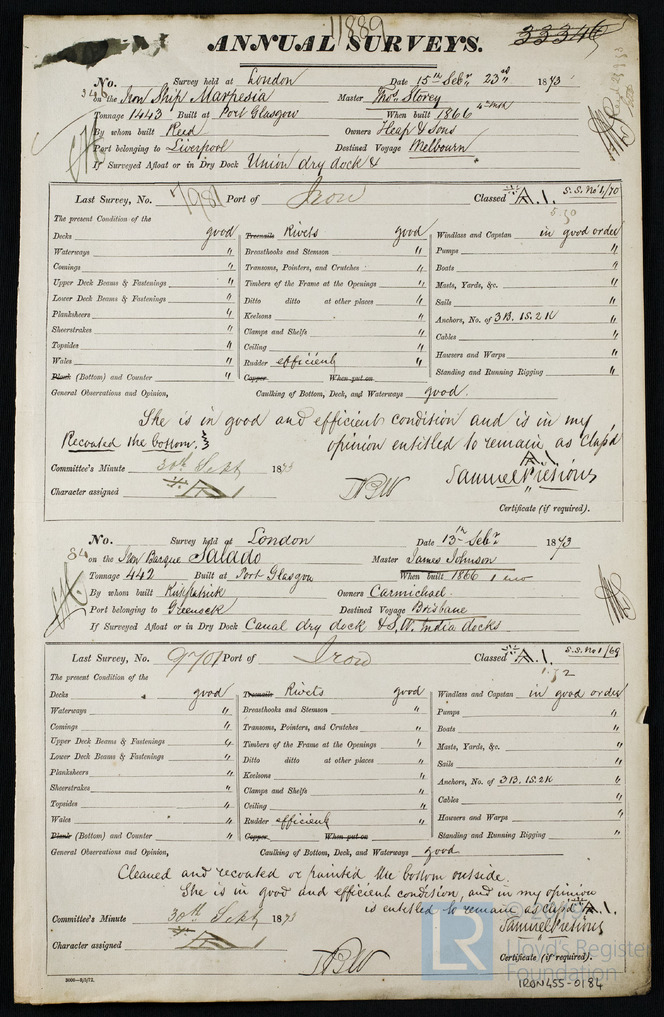 11889
33346
ANNUAL SURVEYS.
No. 346 Survey held at London Date 15th Sebr 23rd 1873
on the Iron Ship Marpesia Master Thos Storey
Tonnage 1443 Built at Port Glasgow When built 1866 4 mth
By whom built Reid Owners Heap & Sons
Port belonging to Liverpool Destined Voyage Melbourn
If Surveyed Afloat or in Dry Dock Union dry dock &
Last Survey, No. 7981 Port of Iron Classed A.1. S.S. No 1/70
The present Condition of the
Decks good Treenails Rivets good Windlass and Capstan in good order
Waterways " Breasthooks and Stemson " Pumps "
Comings " Transoms, Pointers, and Crutches : " Boats "
Upper Deck Beams & Fastenings " Timbers of the Frame at the Openings " Masts, Yards, &c. "
Lower Deck Beams & Fastenings " Ditto ditto at other places " Sails "
Planksheers " Keelsons " Anchors, No. of 3B. 1S. 2K "
Sheerstrakes " Clamps and Shelfs " Cables "
Topsides " Ceiling " Hawsers and Warps "
Wales " Rudder efficient " Standing and Running Rigging "
Plank (Bottom) and Counter " Copper When put on
General Observations and Opinion, Caulking of Bottom, Deck, and Waterways good.
She is in good and efficient condition and is in my
Recoated the bottom. opinion entitled to remain as Clas'd
A.1.
Committee's Minute 30th Sept 1873 Samuel Pretious
Character assigned A1
Certificate (if required).
No. 84 Survey held at London Date 13th Sebr 1873
on the Iron Barque Salado Master James Johnson
Tonnage 442 Built at Port Glasgow When built 1866
By whom built Kirkpatrick Owners Carmichael
Port belonging to Greenock Destined Voyage Brisbane
If Surveyed Afloat or in Dry Dock Canal dry dock & S.W. India docks
Last Survey, No. 9701 Port of Iron Classed A.1. S.S. No 1/69
The present Condition of the
Decks good Treenails Rivets good Windlass and Capstan in good order
Waterways " Breasthooks and Stemson " Pumps "
Comings " Transoms, Pointers, and Crutches " Boats "
Upper Deck Beams & Fastenings " Timbers of the Frame at the Openings " Masts, Yards, &c. "
Lower Deck Beams & Fastenings " Ditto ditto at other places " Sails "
Planksheers " Keelsons " Anchors, No. of 3B. 1S. 2K "
Sheerstrakes " Clamps and Shelfs " Cables "
Topsides " Ceiling " Hawsers and Warps "
Wales " Rudder efficient " Standing and Running Rigging "
Plank (Bottom) and Counter " Copper When put on
General Observations and Opinion, Caulking of Bottom, Deck, and Waterways good
Cleaned and recoated or painted the bottom outside.
She is in good and efficient condition, and in my opinion
is entitled to remain as Clas'd A.1.
Committee's Minute 30th Sept 1873 Samuel Pretious
Character assigned A1
Certificate (if required).
LR
Lloyd's Register
Foundation
IRON455-0184